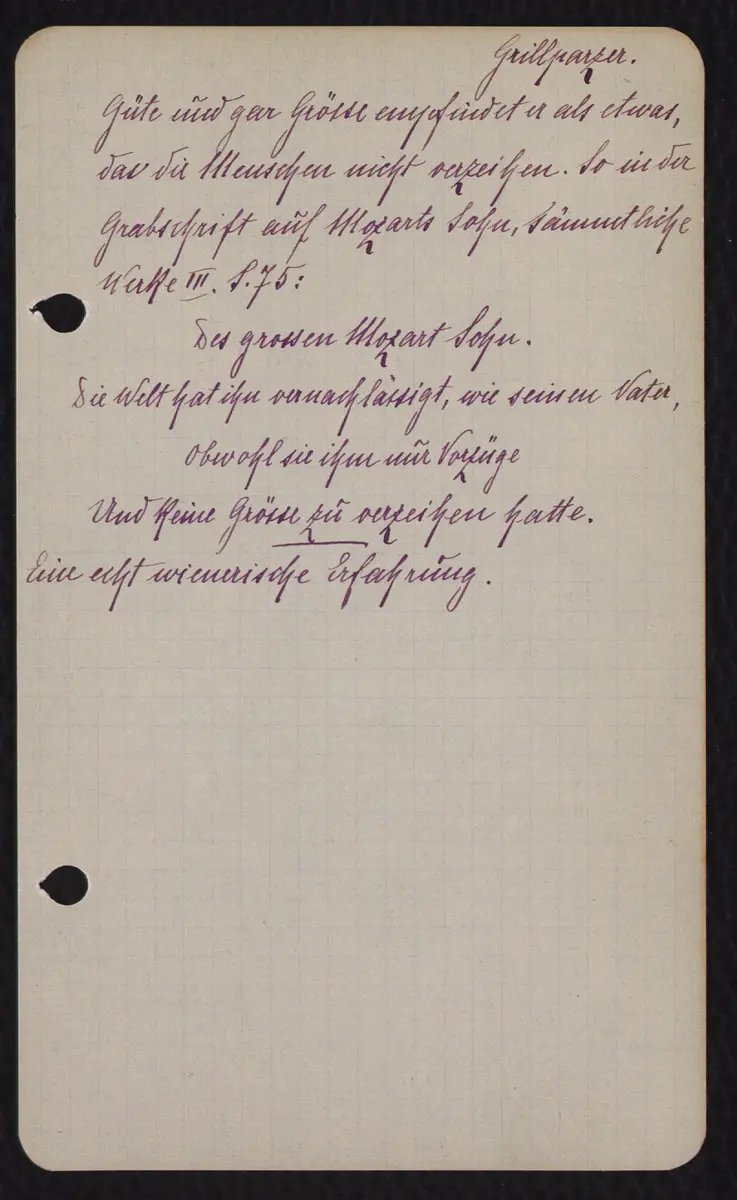 Grillparzer.
Güte und gar Grösse empfindet er als etwas,
das die Menschen nicht verzeihen. So in der
Grabschrift auf Mozarts Sohn, Sämmtliche
Werke III. S. 75:
Des grossen Mozart Sohn.
Die Welt hat ihn vernachlässigt, wie seinen Vater,
Obwohl sie ihm nur Vorzüge
Und keine Grösse zu verzeihen hatte.
Eine echt wienerische Erfahrung.